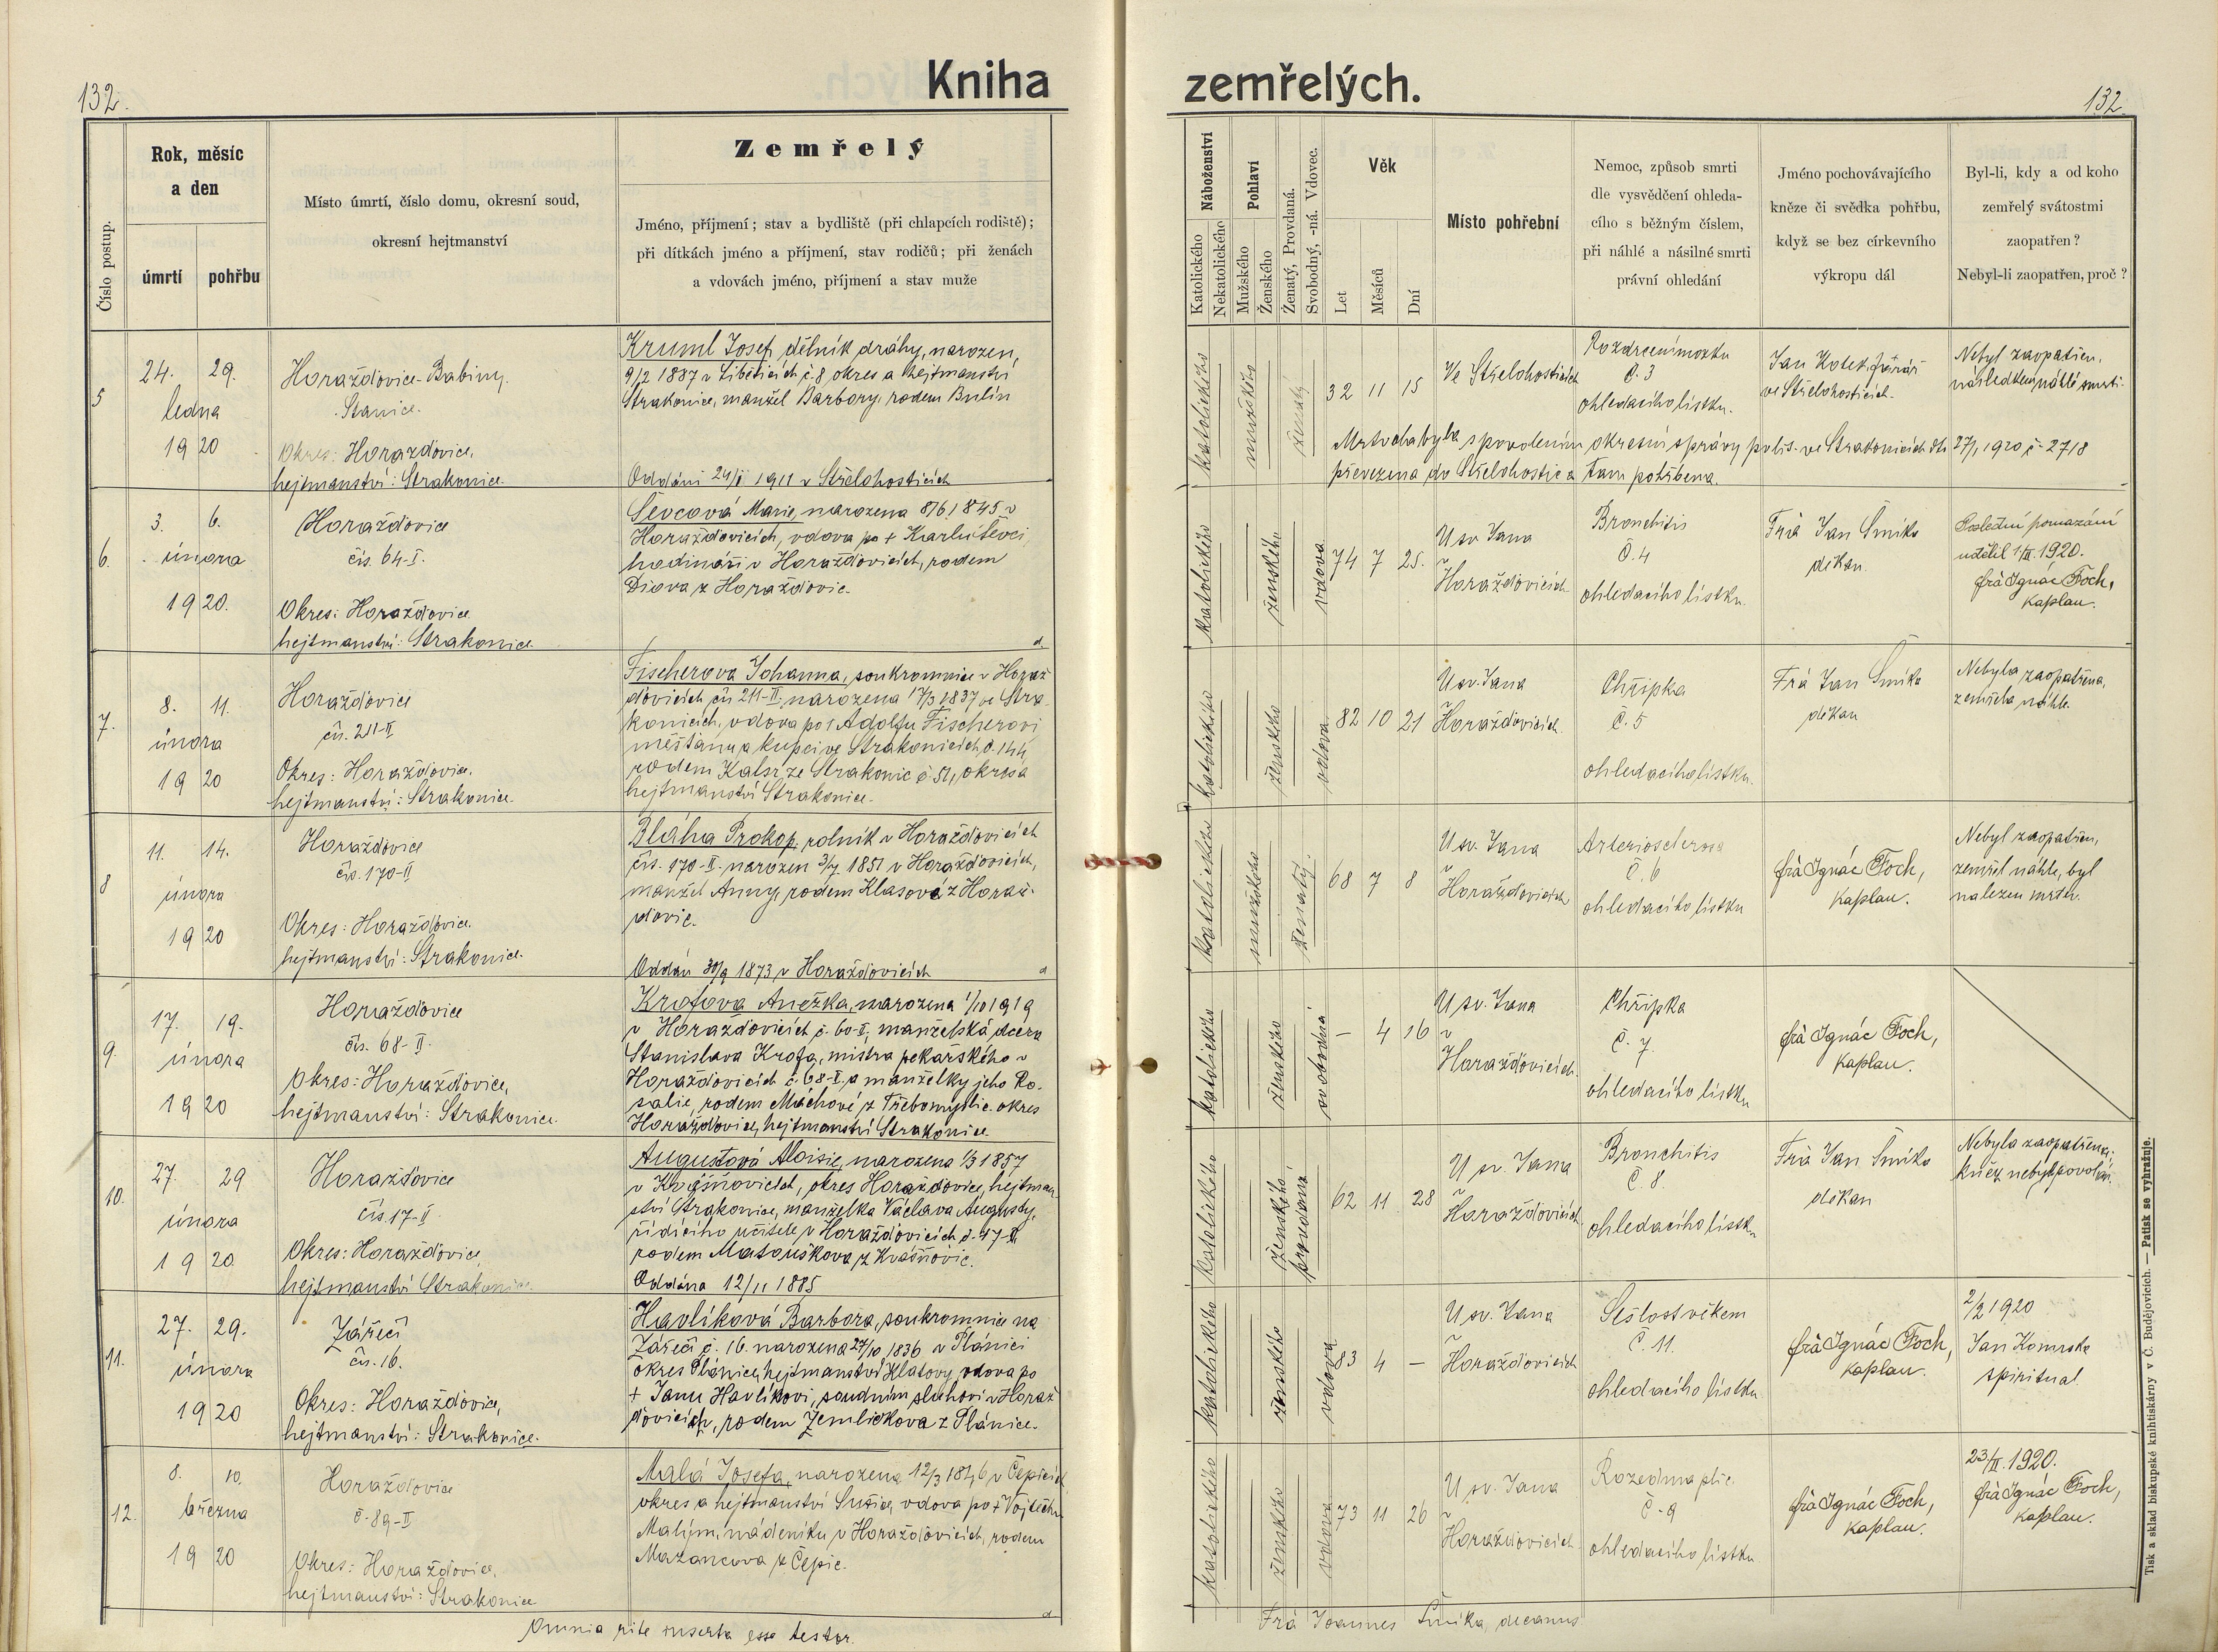 132.
Kniha
zemřelých.
132.
Číslo postup.
Rok, měsíc
a den
úmrtí
pohřbu
Místo úmrtí, číslo domu, okresní soud,
okresní hejtmanství
Zemřelý
Jméno, příjmení; stav a bydliště (při chlapcích rodiště);
při dítkách jméno a příjmení, stav rodičů; při ženách
a vdovách jméno, příjmení a stav muže
Náboženství
Katolického
Nekatolického
Pohlaví
Mužského
Ženského
Ženatý, Provdaná.
Svobodný, -ná. Vdovec.
Věk
Let
Měsíců
Dní
Místo pohřební
Nemoc, způsob smrti
dle vysvědčení ohleda-
cího s běžným číslem,
při náhlé a násilné smrti
právní ohledání
Jméno pochovávajícího
kněze či svědka pohřbu,
když se bez církevního
výkropu dál
Byl-li, kdy a od koho
zemřelý svátostmi
zaopatřen?
Nebyl-li zaopatřen, proč?
5
24. 29.
ledna
1920
Horažďovice-Babiny.
Stanice.
Okres: Horažďovice,
hejtmanství: Strakonice.
Kruml Josef, dělník dráhy, narozen,
9/2 1887 v Liběticích č. 8 okres a hejtmanství
Strakonice, manžel Barbory, rodem Bulín
Oddáni 24/I 1911 v Střelohosticích
katolického
mužského
ženatý
32 11 15
Ve Střelohosticích
Rozdrcení mozku
č. 3
ohledacího lístku.
Jan Kotek, farář
ve Střelohosticích.
Nebyl zaopatřen,
následkem náhlé smrti.
Mrtvola byla s povolením okresní správy polit. ve Strakonicích dto 27/1 1920 č. 2718
převezena do Střelohostic a tam pohřbena.
6.
3. 6.
února
1920.
Horažďovice
čís. 64-I.
Okres: Horažďovice
hejtmanství: Strakonice.
Ševcová Marie, narozena 8/6 1845 v
Horažďovicích, vdova po + Karlu Ševci,
hodináři v Horažďovicích, rodem
z Horažďovic.
katolického
ženského
vdova
74 7 25.
U sv. Jana
v
Horažďovicích
Bronchitis
č. 4
ohledacího lístku.
Frà Jan Šmíka
děkan.
Poslední pomazání
udělil 1/II. 1920.
frà Ignác Foch,
kaplan.
7.
8. 11.
února
1920
Horažďovice
čís. 211-II
Okres: Horažďovice.
hejtmanství: Strakonice.
Fischerova Johanna, soukromnice v Horaž-
ďovicích čís 211-II, narozena 17/3 1837 ve Stra-
konicích, vdova po + Adolfu Fischerovi
měšťanu a kupci ve Strakonicích č. 144,
rodem ze Strakonic č 51, okres a
hejtmanství Strakonice.
katolického
ženského
vdova
82 10 21
U sv. Jana
Horažďovicích.
Chřipka
č. 5
ohledacího lístku.
Frà Jan Šmíka
děkan
Nebyla zaopatřena,
zemřela náhle.
8
11. 14.
února
1920
Horažďovice
čís. 170-II
Okres: Horažďovice.
hejtmanství: Strakonice.
Bláha Prokop, rolník v Horažďovicích
čís. 170-II. narozen 3/7 1851 v Horažďovicích,
manžel Anny, rodem Klasové z Horaž-
ďovic.
Oddán 30/9 1873 v Horažďovicích
katolického
mužského
ženatý.
68 7 8
U sv. Jana
v
Horažďovicích
Arteriosclerosa
č. 6
ohledacího lístku
frà Ignác Foch,
kaplan.
Nebyl zaopatřen,
zemřel náhle, byl
nalezen mrtev.
9.
17. 19.
února
1920
Horažďovice
čís. 68-II.
Okres: Horažďovice,
hejtmanství: Strakonice.
Krofova Anežka, narozena 1/10 1919
v Horažďovicích č. 60-II, manželská dcera
Stanislava Krofa, mistra pekařského v
Horažďovicích č. 68-II, a manželky jeho Ro-
salie, rodem Máchové z Třebomyslic. okres
Horažďovice, hejtmanství Strakonice.
katolického
ženského
svobodná
— 4 16
U sv. Jana
v
Horažďovicích.
Chřipka
č. 7
ohledacího lístku
frà Ignác Foch,
kaplan.
10.
27. 29
února
1920.
Horažďovice
čís. 17-II
Okres: Horažďovice,
hejtmanství Strakonice.
Augustová Aloisie, narozena 1/3 1857
v Kvášňovicích, okres Horažďovice, hejtman-
ství Strakonice, manželka Václava Augusty,
řídícího učitele v Horažďovicích č. 47-II,
rodem Matouškova z Kvášňovic.
Oddána 12/11 1885
katolického
ženského
provdaná
62 11 28
U sv. Jana
v
Horažďovicích
Bronchitis
č. 8.
ohledacího lístku
Frà Jan Šmíka
děkan
Nebyla zaopatřena;
kněz nebyl povolán.
11.
27. 29.
února
1920
Zářečí
čís. 16.
Okres: Horažďovice,
hejtmanství: Strakonice.
Havlíková Barbora, soukromnice na
Zářečí č. 16. narozena 27/10 1836 v Plánici
okres Plánice, hejtmanství Klatovy, vdova po
+ Janu Havlíkovi, soudním sluhovi v Horaž-
ďovicích, rodem Zemličkova z Plánice.
katolického
ženského
vdova
83 4 —
U sv. Jana
v
Horažďovicích
Sešlost věkem
č. 11.
ohledacího lístku
frà Ignác Foch,
kaplan.
2/2 1920
Jan
spirituál
12.
8. 10.
března
1920
Horažďovice
č. 89-II
Okres: Horažďovice,
hejtmanství: Strakonice
Malá Josefa, narozena 12/3 1846 v Čepicích
okres a hejtmanství Sušice, vdova po + Vojtěchu
Malým, nádeníku v Horažďovicích, rodem
Mazancova z Čepic.
katolického
ženského
vdova
73 11 26
U sv. Jana
v
Horažďovicích
Rozedma plic.
č. 9
ohledacího lístku
frà Ignác Foch,
kaplan.
23/II. 1920.
frà Ignác Foch,
kaplan.
Omnia rite inserta esse testor.
Frà Joannes Šmíka, decanus
Tisk a sklad biskupské knihtiskárny v Č. Budějovicích. — Patisk se vyhražuje.